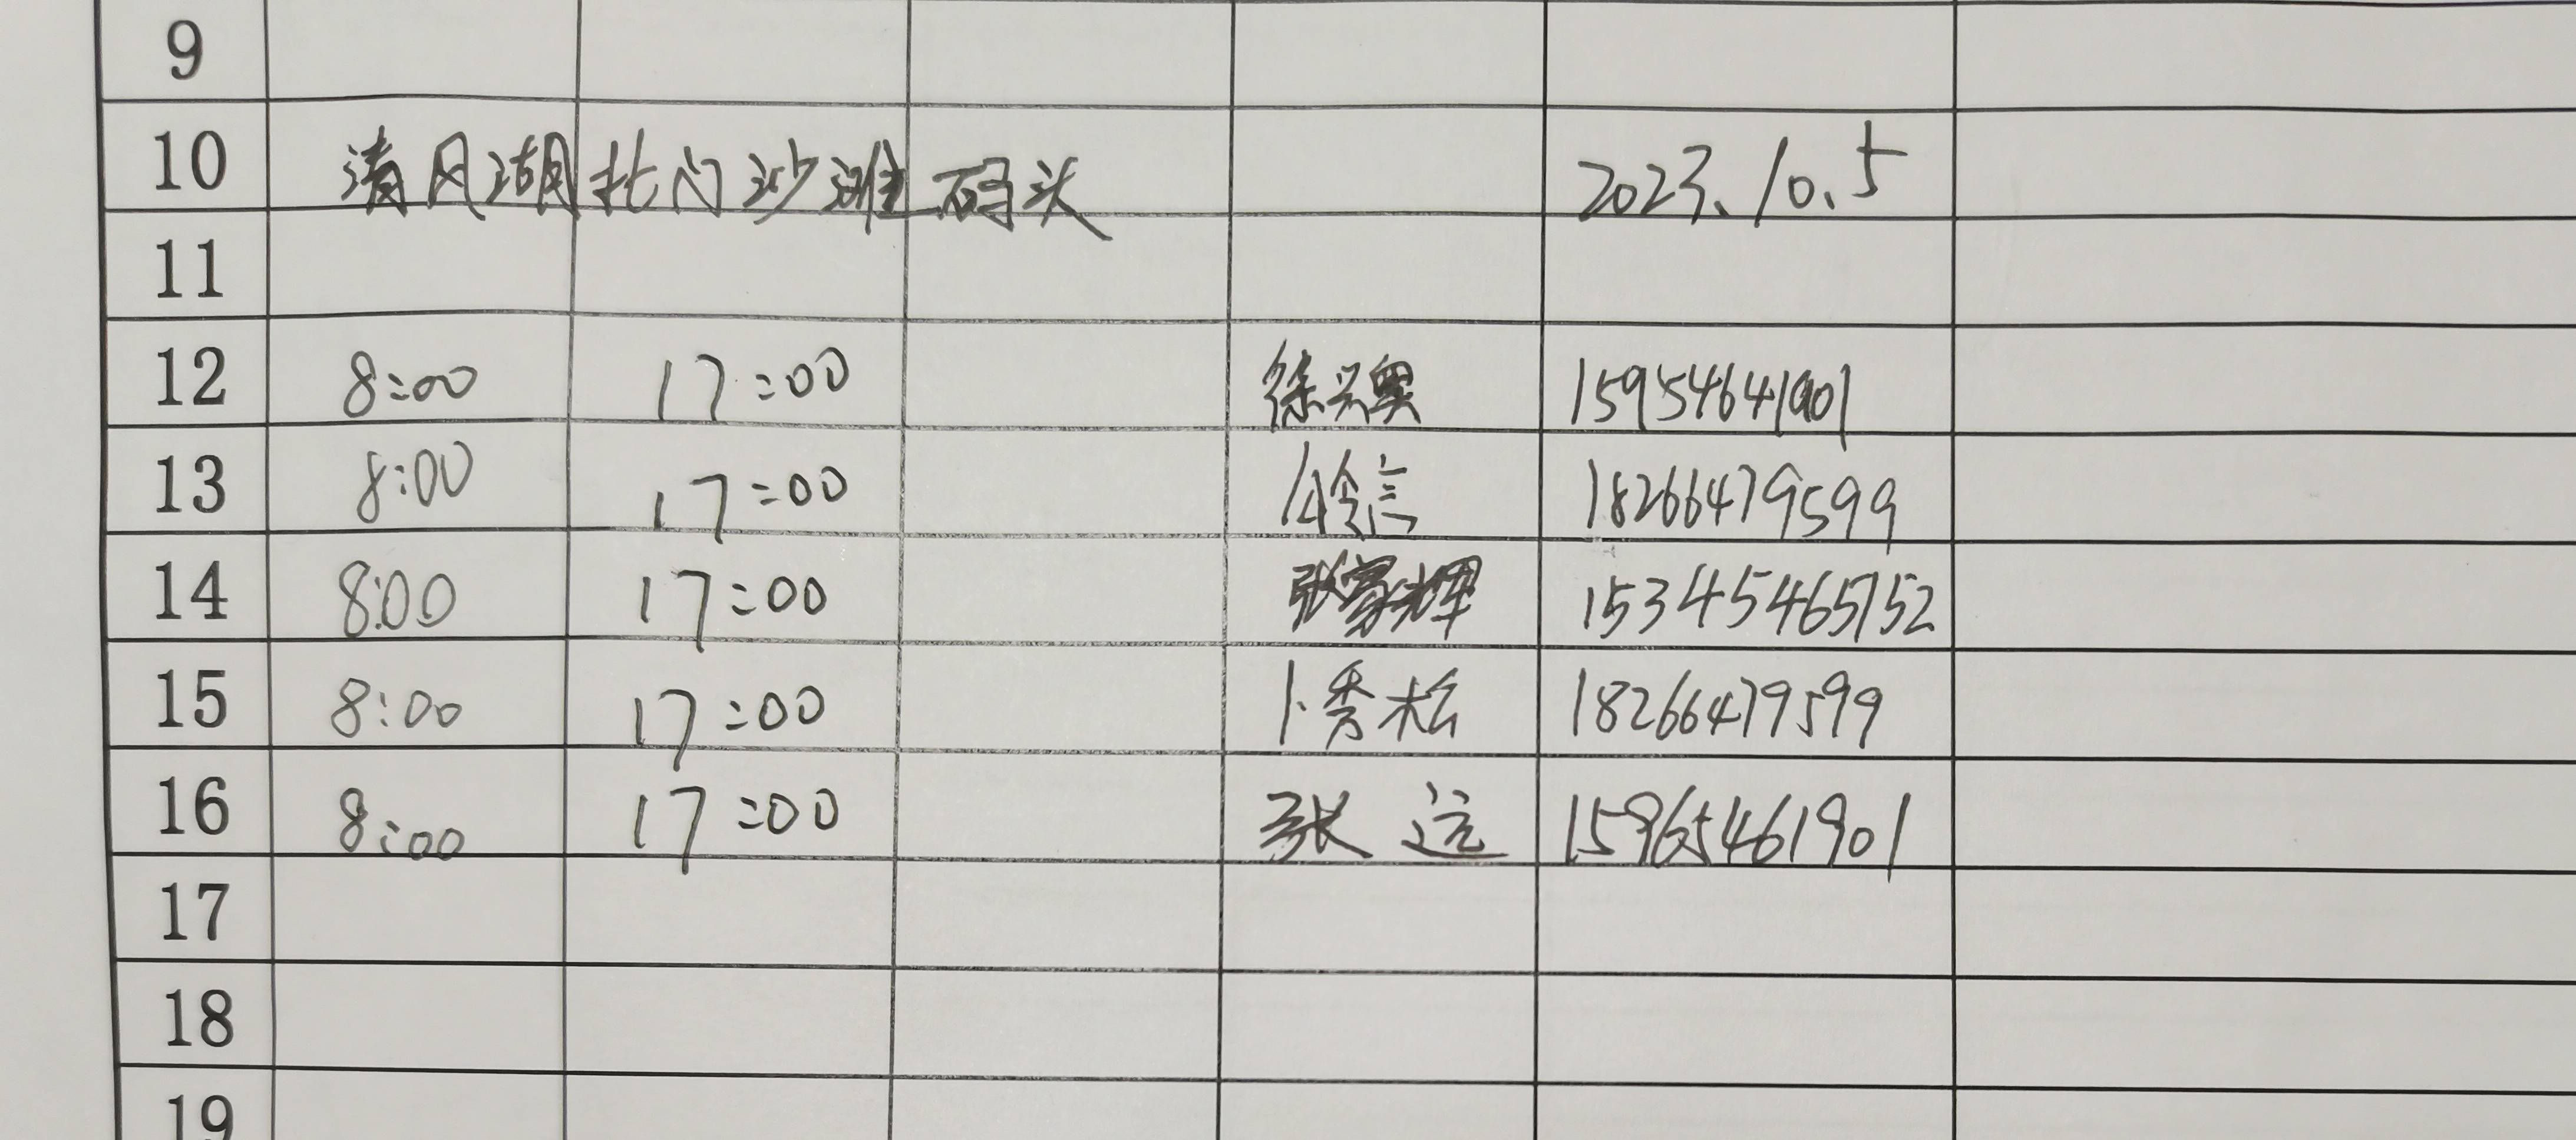 9
10 清风湖北门沙滩码头 2023.10.5
11
12 8:00 17:00 徐兴奥 15954641901
13 8:00 17:00 18266479599
14 8:00 17:00 张家辉 15345465752
15 8:00 17:00 卜秀松 18266479599
16 8:00 17:00 张运 15965461901
17
18
19